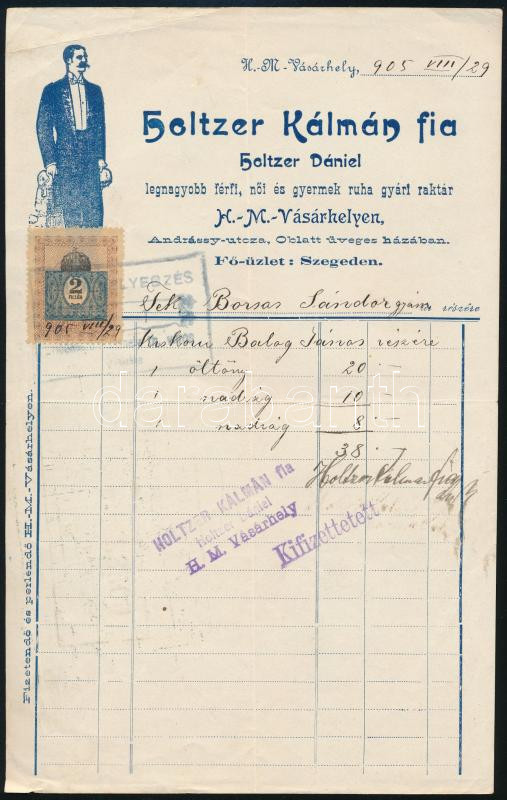 H.-M.-Vásárhely, 905 VIII/29
Holtzer Kálmán fia
Holtzer Dániel
legnagyobb férfi, női és gyermek ruha gyári raktár
H.-M.-Vásárhelyen,
Andrássy-utcza, Oblatt üveges házában.
Fő-üzlet: Szegeden.
2
FILLÉR
905 VIII/29
Tek Borsas Sándor részére
Balog János részére
1 öltöny 20 -
1 nadrág 10 -
1 nadrág 8 -
38 -
Holtzer Kálmán fia
HOLTZER KÁLMÁN fia
Holtzer Dániel
H. M. Vásárhely
Kifizettetett
Fizetendő és perlendő H.-M.-Vásárhelyen.
darabanth